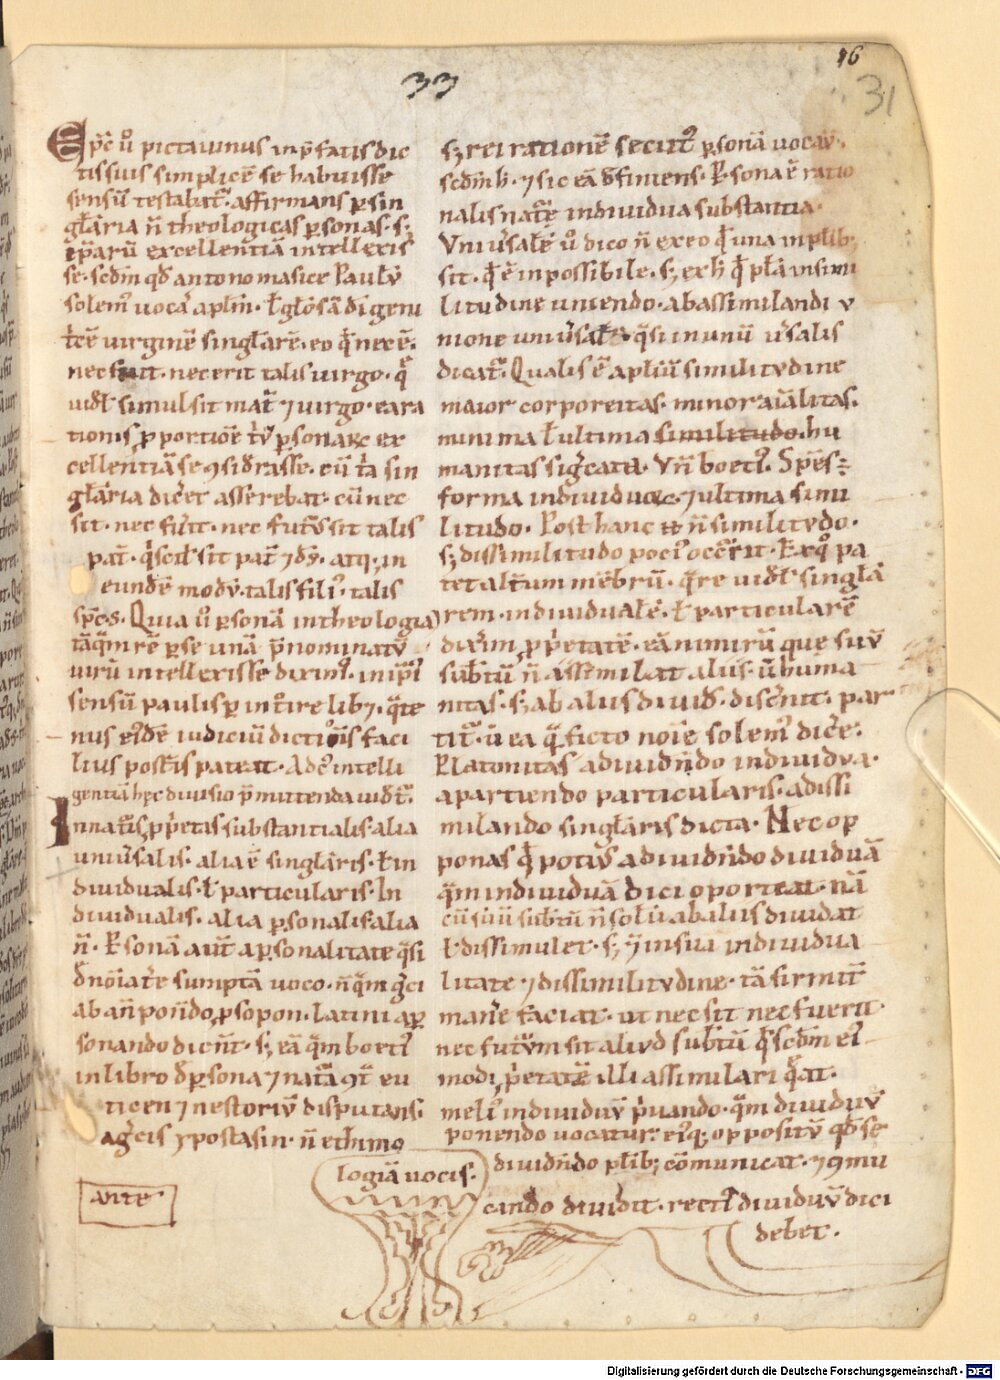 16
33
31
Ep̄c ů pictauinus inp̄fatis dic
tis suis simplicē se habuisse
sensū testabat᷒. affirmans ꝑsin
gl̄aria n̄ theologicas ꝑsonas. sꝫ
ip̄arū excellentiā intellexis
se. scd̄m qd̄ antonomasice Paulū
solem᷒ uocar̄ apl̄m. ł gl̄osā dī geni
t̄cē uirginē singl̄arē. eo q̇ nec ē.
nec fuit. nec erit talis uirgo. q̄
uid̄t simul sit mat̄ ⁊ uirgo. eara
tionis ꝓportiōe tr̄ ꝑsonaꝝ ex
cellentiā se ꝯsid̄rasse. cū t̄a sin
gl̄aria dic̄et asserebat. cū nec
sit. nec fuīt. nec futur̄ sit talis
pat̄. q̇ scił sit pat̄ ⁊ dꝰ. atqꝫ in
eundē modū. talis filiꝰ. talis
sp̄c̄s. Quia ů ꝑsonā in theologia
tāq̄m rē ꝑse unā p̄nominatū
uirū intellexisse diximꝰ. in ip̄i
sensū paulisꝑ int̄ire libꝫ. q̄te
nus eiꝰdē iudiciū dictiōis faci
lius post̄is pateat. Ad cꝰ intelli
gentiā hęc diuisio p̄mittenda uid̄t᷒.
Innat̄is ꝓp̄etas substantialis alia
uniu̇salis. alia ē singl̄aris. ł in
diuidualis. ł particularis. In
diuidualis. alia ꝑsonalis alia
n̄. ꝑsonā aut̄ a ꝑsonalitate q̄si
d̄noīat̄e sumptā uoco. n̄ q̄m gci
ab an̄pon̄do, ꝓsopon. Latini aꝑ
sonando dicn̄t. sꝫ eā q̄m boetiꝰ
in libro d̄ ꝑsona ⁊ nat̄a ꝯt̄ eu
ticen ⁊ nestoriū disputans.
ag̊cis ypostasin. n̄ ethimo
logiā uocis.
ante
sꝫ rei rationē secutꝰ ꝑsonā uocau̇.
scd̄m h̄. ⁊ sic eā d̄finiens. ꝑsona ē ratio
nalis nat̄ę indiuidua substantia.
Vniu̇salē ů dico n̄ ex eo q̇ una in pl̄ibꝫ
sit. q̇ ē inpossibile. sꝫ ex h̄ q̇ pl̄a insimi
litudine uniendo. ab assimilandi v
nione uniu̇salē q̄si in unū u̇salis
dicat᷒. Qualis ē apl̄ium similitvdine
maior corporeitas. minor aīalitas.
minima ł ultima similitudo. hu
manitas sig̊cata. Vn̄ boetiꝰ. Spēs
forma indiuiduoꝝ. ⁊ ultima simi
litudo. Post hanc n̄ similitvdo.
sꝫ dissimilitudo pociꝰ occ̄rit. Ex q̊ pa
tet alt̄um mēbrū. q̄re uid̄t singl̄a
rem. indiuidualē. ł particularē
diximꝰ ꝓp̄etatē. eā nimirū que suū
subt̄ū n̄ assimilat aliis. u̇ huma
nitas. sꝫ ab aliis diuidꝭ. disc̄nit. par
tit᷒. u̇ ea q̄ ficto noīe solemꝰ dic̄e.
Platonitas adiuidn̄do indiuidua.
apartiendo particularis. ad issi
milando singl̄aris dicta. Nec op
ponas q̇ potiꝰ adiuidn̄do diuiduā
q̄m indiuiduā dici oporteat. nā
cū suū subt̄ū n̄ solū ab aliis diuidat
ł dissimulet. sꝫ ⁊ in sui indiuidua
litate ⁊ dissimilitvdine. tā firmit̄
man̄e faciat. ut nec sit nec fuerit.
nec futv̄m sit aliud subt̄ū q̇ scd̄m eiꝰ
modi ꝓp̄etatē illi assimilari q̄at.
meliꝰ indiuiduū p̄uando. q̄m diuiduū
ponendo uocatur. eiꝰqꝫ oppositū qd̄ se
diuidn̄do pl̄ibꝫ cōmunicat. ⁊ ꝯmu
cando diuidit. rectiꝰ diuiduū dici
debet.
Digitalisierung gefördert durch die Deutsche Forschungsgemeinschaft - DFG